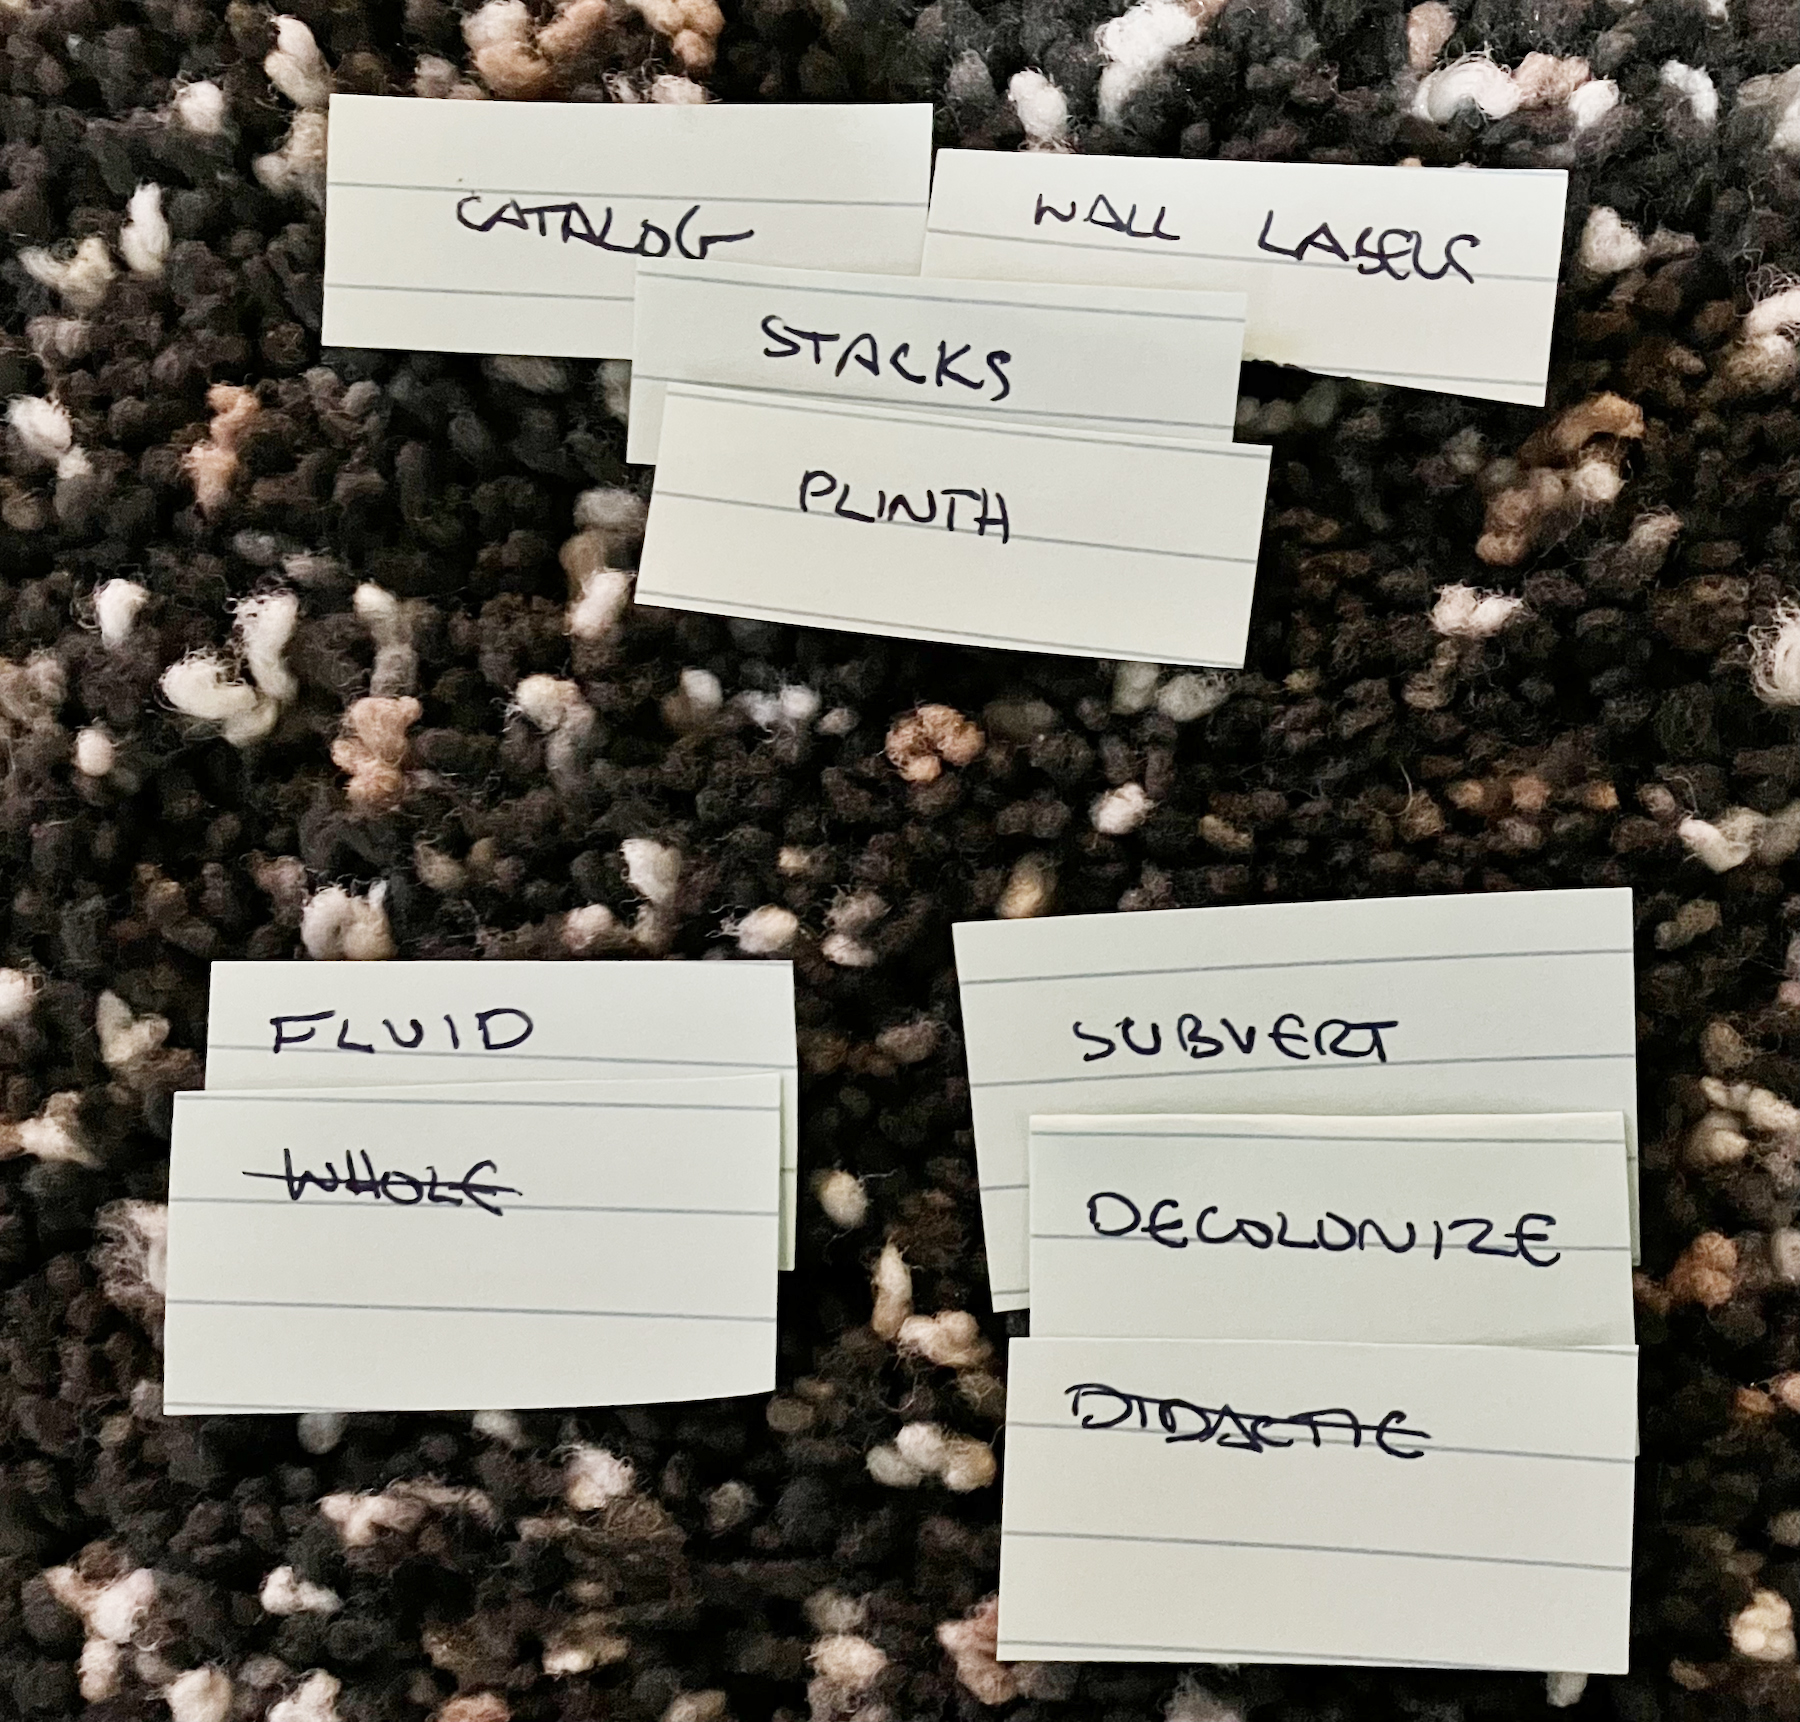 CATALOG
WALL LABELS
STACKS
PLINTH
FLUID
WHOLE
SUBVERT
DECOLONIZE
DIDACTIC